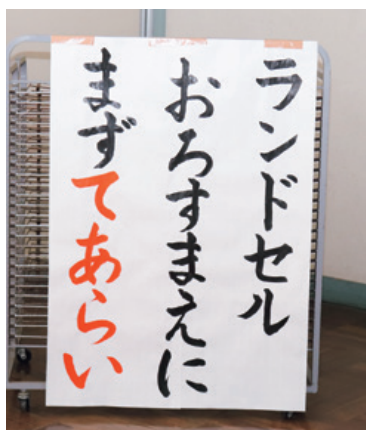 ランドセル
おろすまえに
まずてあらい